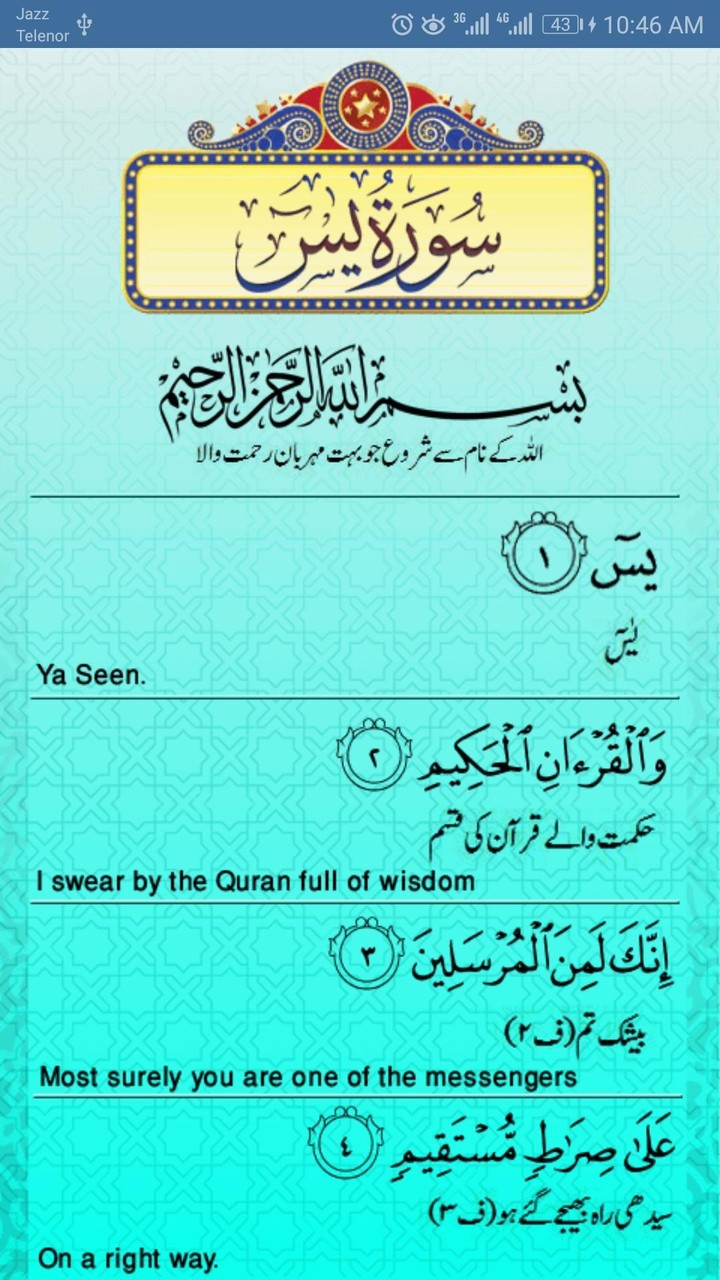 Jazz
Telenor
3G 4G 43 10:46 AM
سُورَةُ يٰسٓ
بِسْمِ اللهِ الرَّحْمٰنِ الرَّحِيْمِ
اللہ کے نام سے شروع جو بہت مہربان رحمت والا
يسٓ ١
یٰسٓ
Ya Seen.
وَٱلْقُرْءَانِ ٱلْحَكِيمِ ٢
حکمت والے قرآن کی قسم
I swear by the Quran full of wisdom
إِنَّكَ لَمِنَ ٱلْمُرْسَلِينَ ٣
بیشک تم (ف۲)
Most surely you are one of the messengers
عَلَىٰ صِرَٰطٍ مُّسْتَقِيمٍ ٤
سیدھی راہ بھیجے گئے ہو (ف۳)
On a right way.